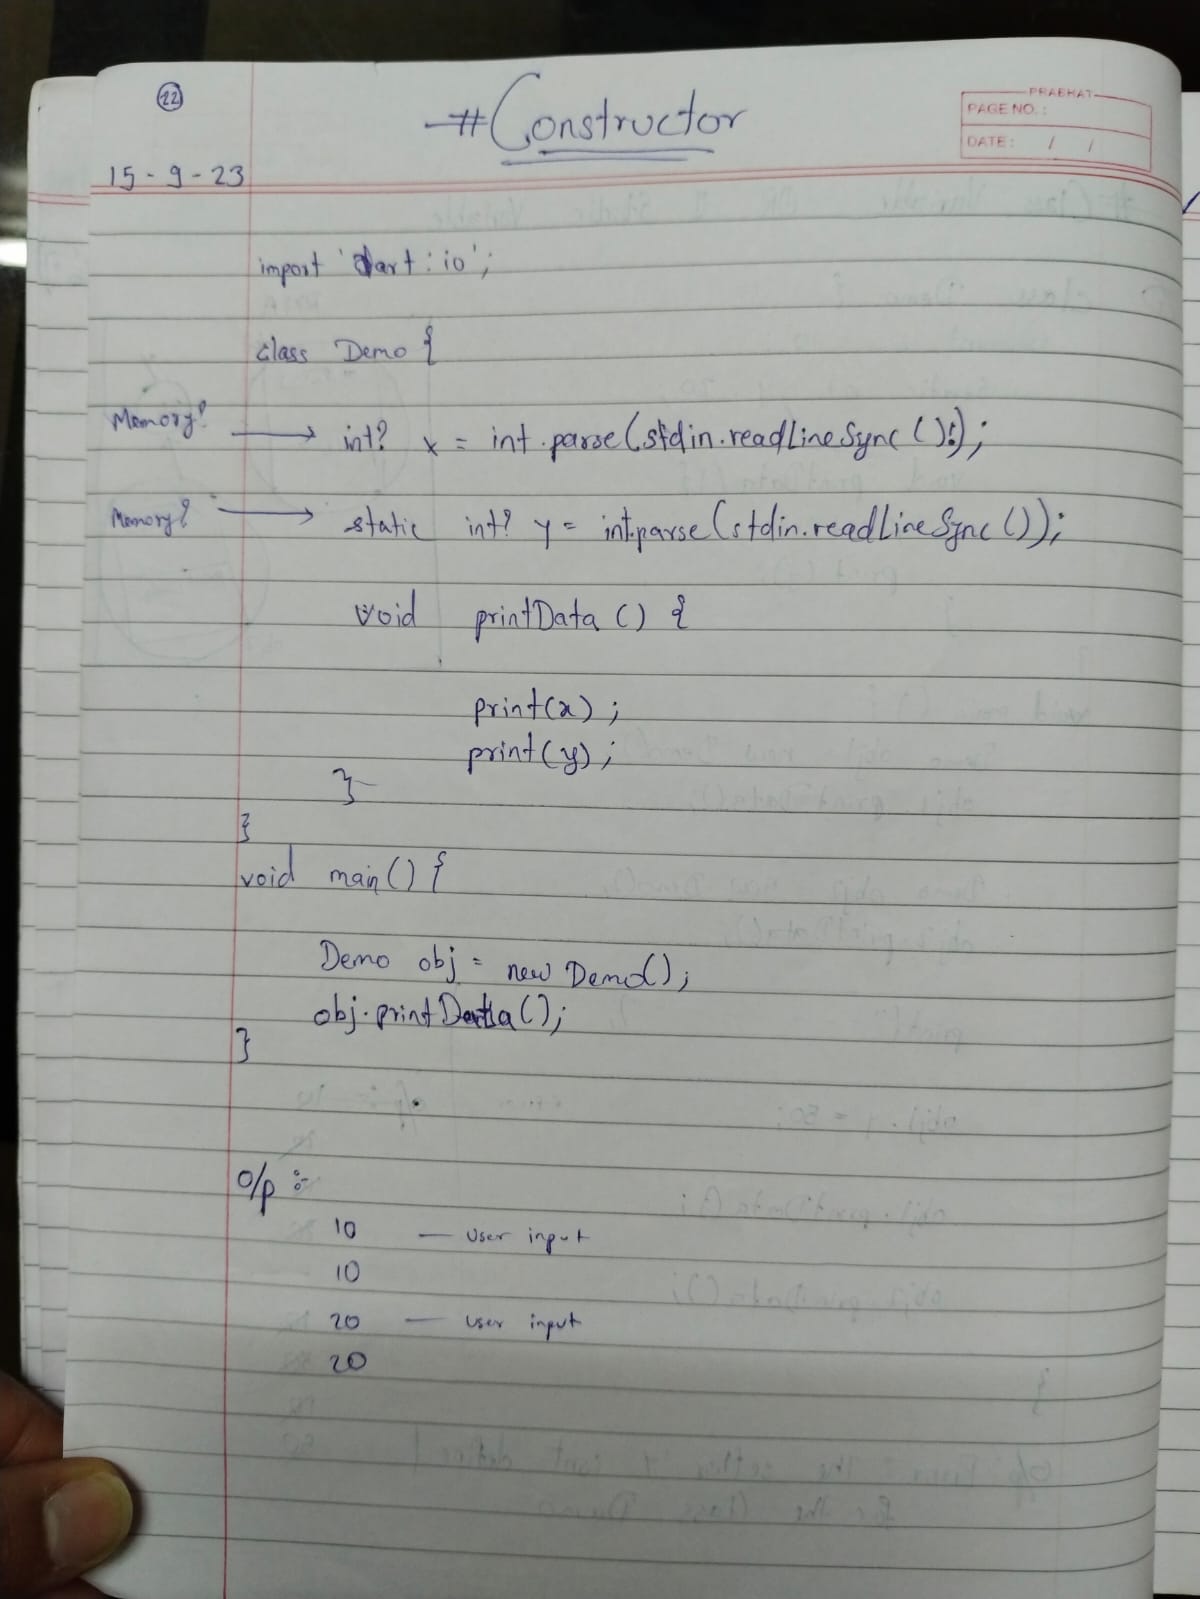 22
# Constructor
PRABHAT
PAGE NO. :
DATE: / /
15 - 9 - 23
import 'dart : io';
class Demo {
Memory? → int? x = int.parse(stdin.readLineSync()!);
Memory? → static int? y = int.parse(stdin.readLineSync());
void printData () {
print(x) ;
print(y) ;
}
}
void main() {
Demo obj = new Demo();
obj.printData();
}
O/p :-
10 — user input
10
20 — user input
20